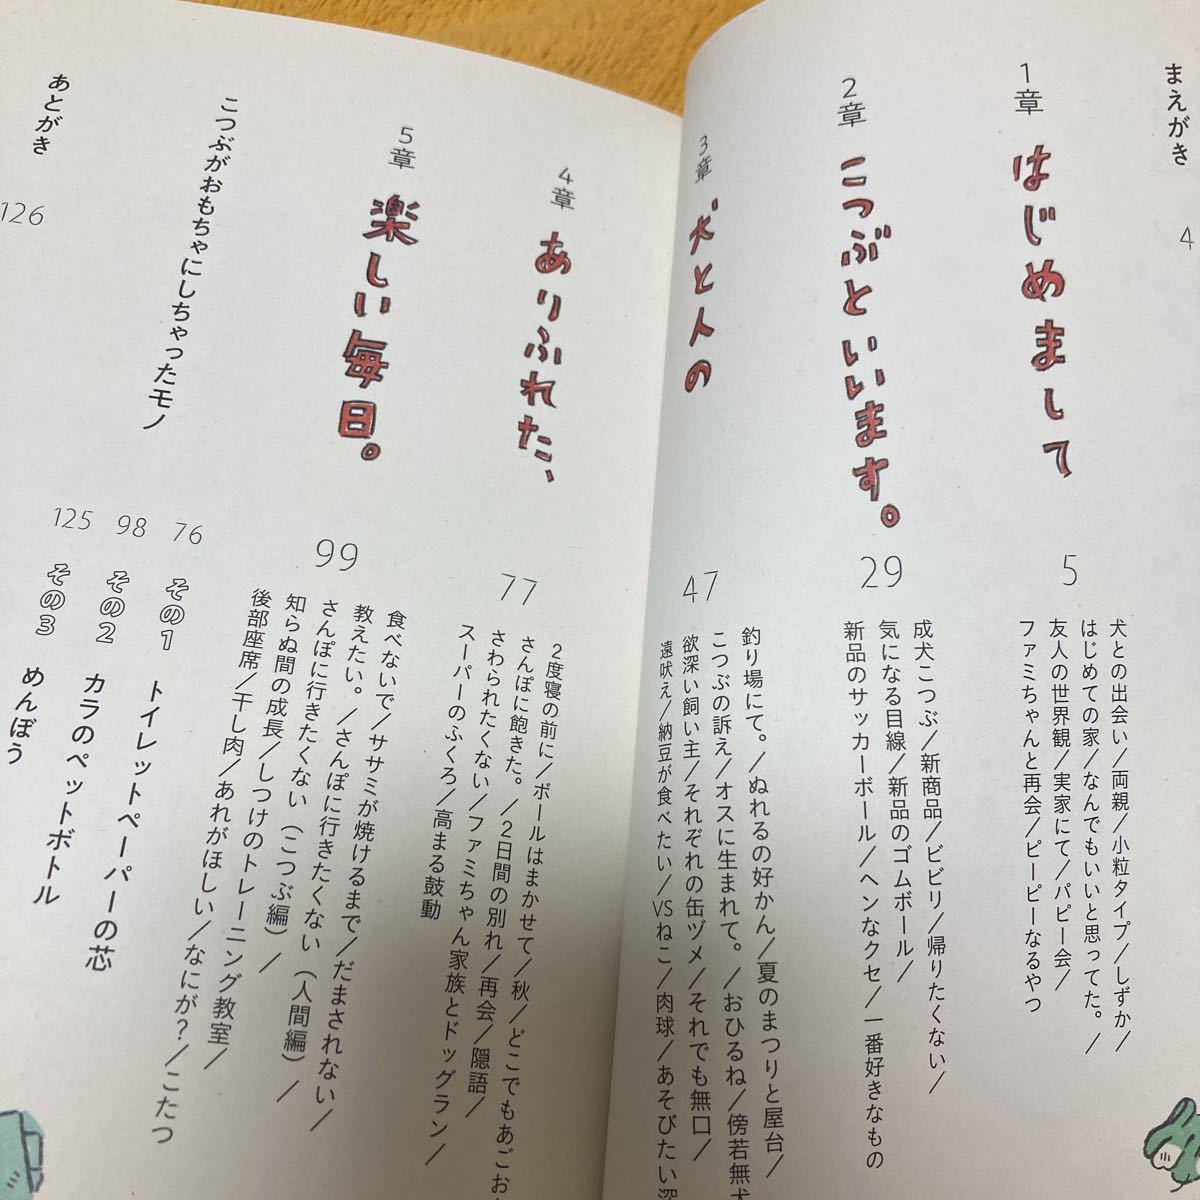 まえがき 4
1章 はじめまして 5
犬との出会い/両親/小粒タイプ/しずか/
はじめての家/なんでもいいと思ってた。/
友人の世界観/実家にて/パピー会/
ファミちゃんと再会/ピーピーなるやつ
2章 こつぶといいます。 29
成犬こつぶ/新商品/ビビリ/帰りたくない/
気になる目線/新品のゴムボール/
新品のサッカーボール/ヘンなクセ/一番好きなもの
3章 犬と人の 47
釣り場にて。/ぬれるの好かん/夏のまつりと屋台/
こつぶの訴え/オスに生まれて。/おひるね/傍若無犬
欲深い飼い主/それぞれの缶ヅメ/それでも無口/
遠吠え/納豆が食べたい/VSねこ/肉球/あそびたい深
4章 ありふれた、 77
2度寝の前に/ボールはまかせて/秋/どこでもあごお
さんぽに飽きた。/2日間の別れ/再会/隠語/
さわられたくない/ファミちゃん家族とドッグラン/
スーパーのふくろ/高まる鼓動
5章 楽しい毎日。 99
食べないで/ササミが焼けるまで/だまされない/
教えたい。/さんぽに行きたくない(人間編)/
さんぽに行きたくない(こつぶ編)/
知らぬ間の成長/しつけのトレーニング教室/
後部座席/干し肉/あれがほしい/なにが?/こたつ
こつぶがおもちゃにしちゃったモノ
76 その1 トイレットペーパーの芯
98 その2 カラのペットボトル
125 その3 めんぼう
あとがき 126